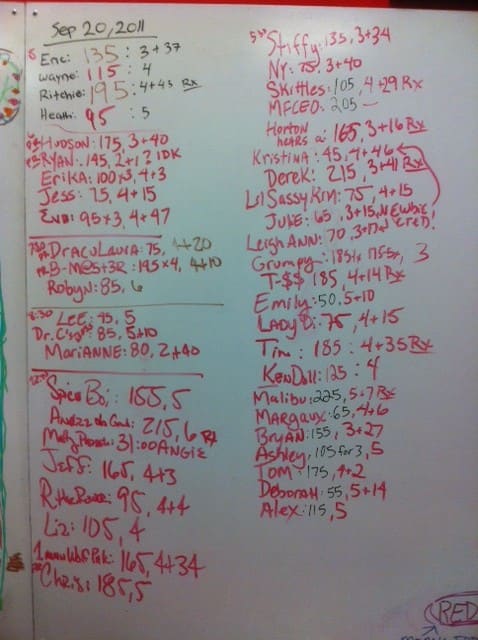 Sep 20, 2011
6 Eric: 135 : 3+37
Wayne: 115 : 4
Ritchie: 195 : 4+45 Rx
Heath: 95 : 5
HUDSON: 175, 3+40
RYAN: 145, 2+1 ? IDK
ERIKA: 100x3, 4+3
Jess: 75, 4+15
95x3, 4+47
DracuLaura: 75, 4+20
B-M@S+3R: 195x4, 4+10
Robyn: 85, 6
8:30 LEE: 75, 5
Dr. 85, 5+10
MariANNE: 80, 2+40
Spicy Boi: 155, 5
215, 6 Rx
31:00 ANGIE
JEFF: 165, 4+3
95, 4+4
Liz: 105, 4
1 man Wolf Pak: 165, 4+34
Chris: 185, 5
Stiffy: 135, 3+34
NY: 75, 3+40
Skittles: 105, 4+29 Rx
MFCEO: 205 —
Horton hears a: 165, 3+16 Rx
Kristina: 45, 4+46
Derek: 215, 3+41 Rx
Lil Sassy Kim: 75, 4+15
JUKE: 65, 3+15, NEWBIE!
Leigh Ann: 70, 3+17
Grumpy: 185x1, 175x, 3
T-$$ 185, 4+14 Rx
Emily: 50, 5+10
LADY Di: 75, 4+15
Tim: 185 : 4+35 Rx
Ken Doll: 125 : 4
Malibu: 225, 5+7 Rx
Margaux: 65, 4+6
BRYAN: 155, 3+27
Ashley, 105 for 3, 5
TOM: 175, 4+2
Deborah: 55, 5+14
Alex: 115, 5
RED